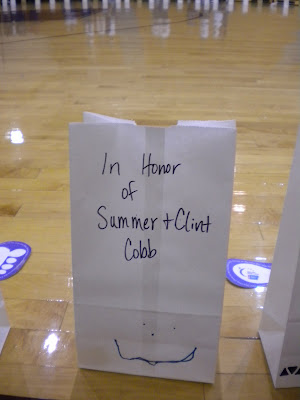 In Honor
of
Summer + Clint
Cobb